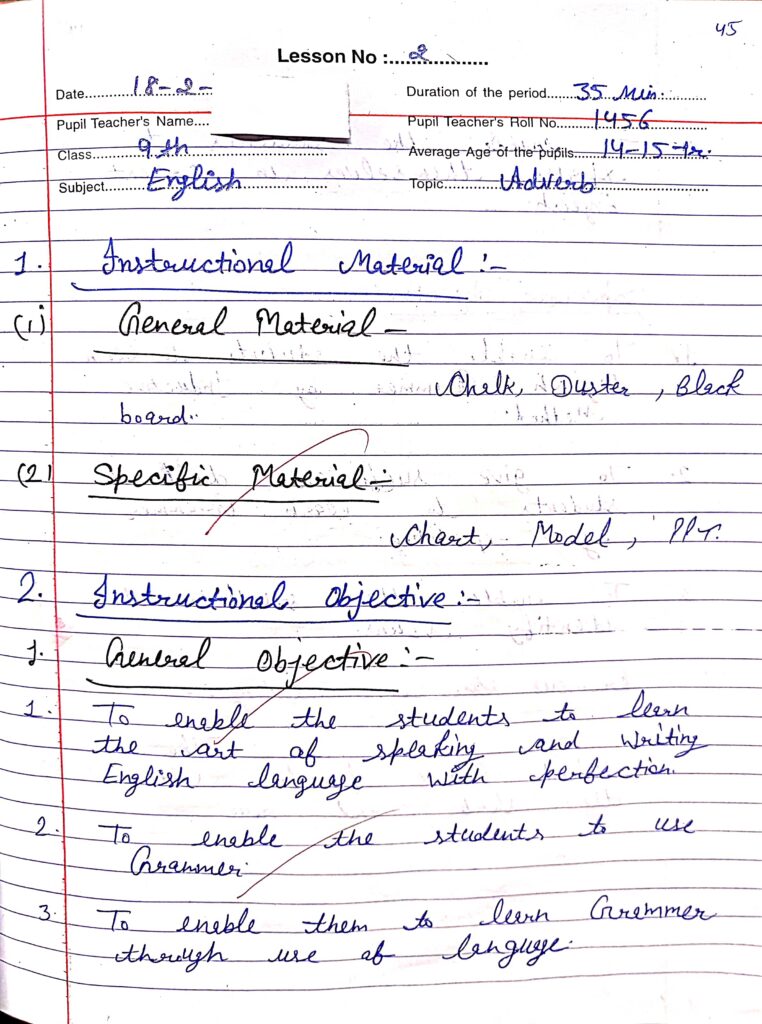 45
Lesson No :....2..............
Date............18-2-
Duration of the period.......35 Min...........
Pupil Teacher's Name....
Pupil Teacher's Roll No..........1456................
Class..........9th.........................................
Average Age of the pupils.......14-15 Yr.
Subject..........English......................
Topic..............Adverb......................
1. Instructional Material :-
(1) General Material -
Chalk, Duster, Black
board..
(2) Specific Material:-
Chart, Model, PPT.
2. Instructional Objective :-
1. General Objective :-
1. To enable the students to learn
the art of speaking and writing
English language with perfection.
2. To enable the students to use
Grammer.
3. To enable them to learn Grammer
through use of language.